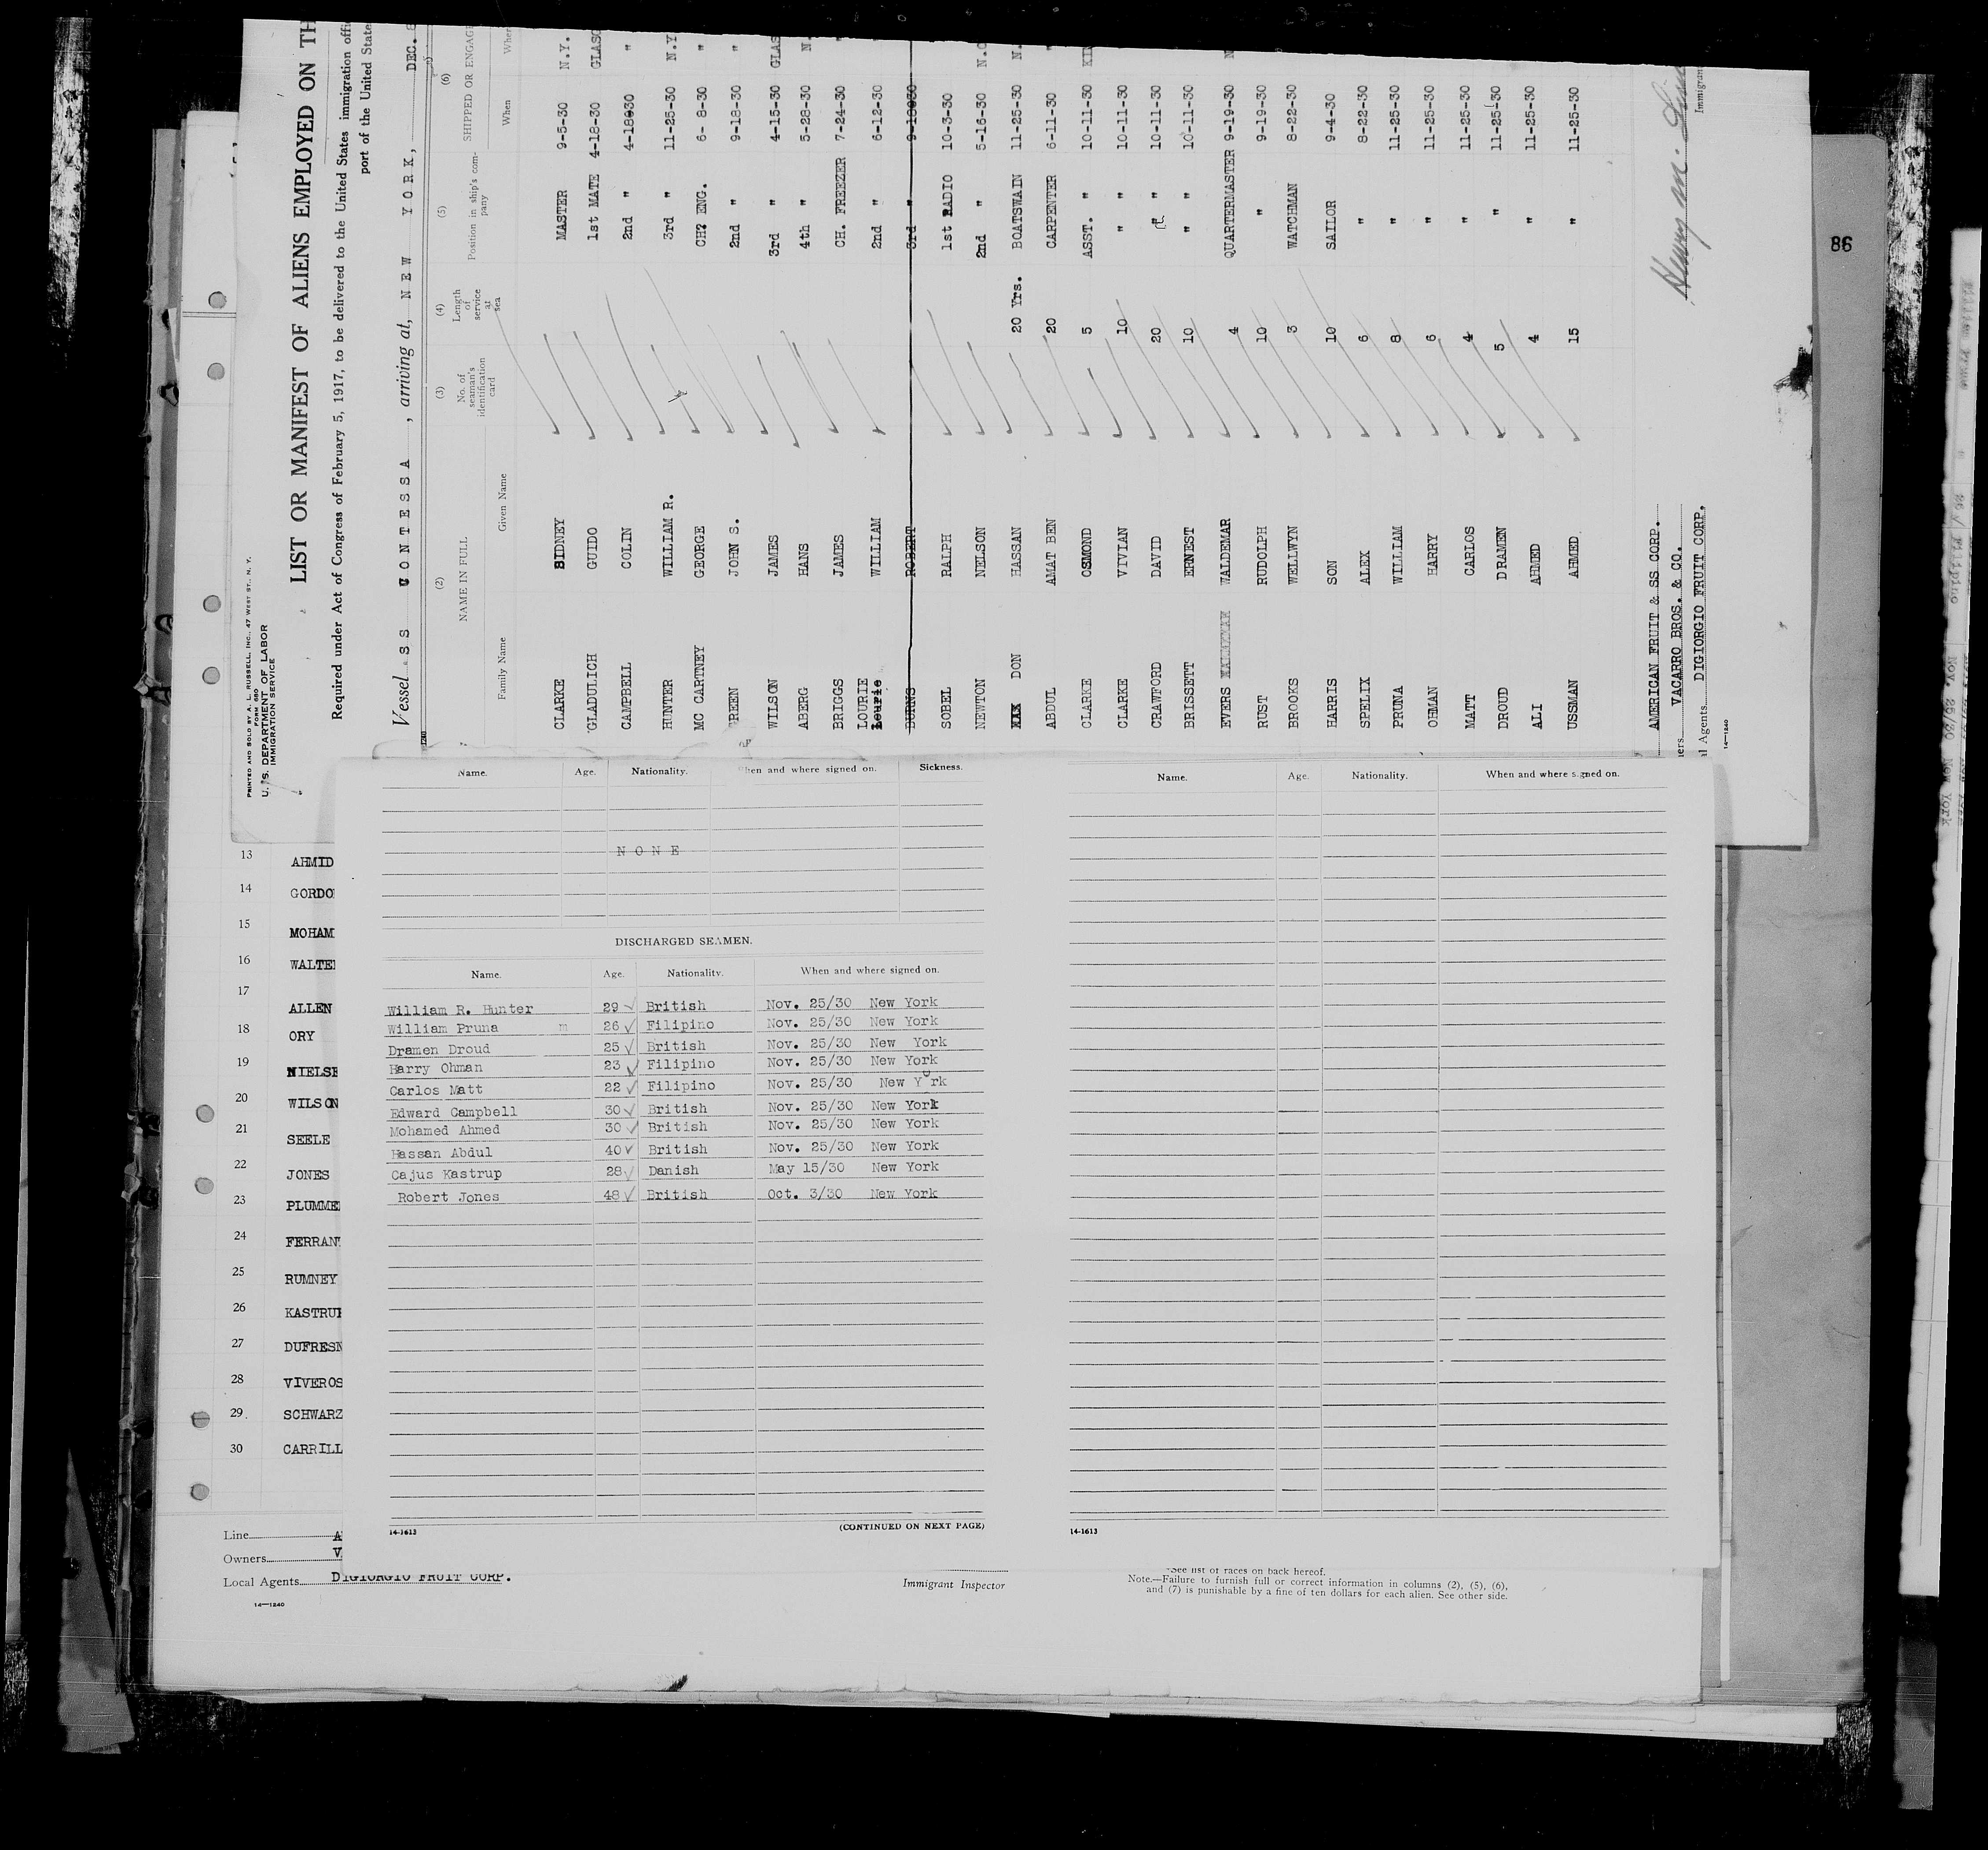 PRINTED AND SOLD BY A. L. RUSSELL, INC., 47 WEST ST., N. Y.
FORM 680
U. S. DEPARTMENT OF LABOR
IMMIGRATION SERVICE
LIST OR MANIFEST OF ALIENS EMPLOYED ON TH
Required under Act of Congress of February 5, 1917, to be delivered to the United States immigration offi
port of the United State
Vessel SS CONTESSA, arriving at, NEW YORK, DEC. 8
(2) (3) (4) (5) (6)
NAME IN FULL No. of seaman's identification card Length of service at sea Position in ship's company SHIPPED OR ENGAG
Family Name Given Name When Wher
CLARKE SIDNEY MASTER 9-5-30 N.Y.
GLADULICH GUIDO 1st MATE 4-18-30 GLASG
CAMPBELL COLIN 2nd " 4-18030 "
HUNTER WILLIAM R. 3rd " 11-25-30 N.Y
MC CARTNEY GEORGE CH? ENG. 6- 8-30 "
GREEN JOHN S. 2nd " 9-18-30 "
WILSON JAMES 3rd " 4-15-30 GLAS
ABERG HANS 4th " 5-28-30 N.
BRIGGS JAMES CH. FREEZER 7-24-30 "
LOURIE WILLIAM 2nd " 6-12-30
Lourie
BURNS ROBERT 3rd "
SOBEL RALPH 1st RADIO 10-3-30
NEWTON NELSON 2nd " 5-16-30 N.O
DON HASSAN 20 Yrs. BOATSWAIN 11-25-30 N.
ABDUL AMAT BEN 20 CARPENTER 6-11-30 "
CLARKE OSMOND 5 ASST. " 10-11-30 KIN
CLARKE VIVIAN 10 " " 10-11-30
CRAWFORD DAVID 20 " 10-11-30
BRISSETT ERNEST 10 " " 10-11-30
EVERS WALDEMAR 4 QUARTERMASTER 9-19-30 N
RUST RUDOLPH 10 " 9-19-30
BROOKS WELLWYN 3 WATCHMAN 8-22-30
HARRIS SON 10 SAILOR 9-4-30
SPELIX ALEX 6 " 8-22-30
PRUNA WILLIAM 8 " 11-25-30
OHMAN HARRY 6 " 11-25-30
MATT CARLOS 4 " 11-25-30
DROUD DRAMEN 5 " 11-25-30
ALI AHMED 4 " 11-25-30
USSMAN AHMED 15 " 11-25-30
AMERICAN FRUIT & SS CORP.
ners VACARRO BROS. & CO.
l Agents DIGIORGIO FRUIT CORP.
14—1240
Immigran
86
Name. Age. Nationality. When and where signed on. Sickness.
N O N E
DISCHARGED SEAMEN.
Name. Age. Nationality. When and where signed on.
William R. Hunter 29 British Nov. 25/30 New York
William Pruna m 26 Filipino Nov. 25/30 New York
Dramen Droud 25 British Nov. 25/30 New York
Harry Ohman 23 Filipino Nov. 25/30 New York
Carlos Matt 22 Filipino Nov. 25/30 New York
Edward Campbell 30 British Nov. 25/30 New York
Mohamed Ahmed 30 British Nov. 25/30 New York
Hassan Abdul 40 British Nov. 25/30 New York
Cajus Kastrup 28 Danish May 15/30 New York
Robert Jones 48 British Oct. 3/30 New York
14-1613 (CONTINUED ON NEXT PAGE)
Name. Age. Nationality. When and where signed on.
14-1613
13 AHMID
14 GORDO
15 MOHAM
16 WALTE
17 ALLEN
18 ORY
19 NIELSE
20 WILSON
21 SEELE
22 JONES
23 PLUMME
24 FERRAN
25 RUMNEY
26 KASTRUP
27 DUFRESN
28 VIVEROS
29 SCHWARZ
30 CARRILL
Line A
Owners V
Local Agents DIGIORGIO FRUIT CORP.
14—1240
Immigrant Inspector
See list of races on back hereof.
Note.—Failure to furnish full or correct information in columns (2), (5), (6),
and (7) is punishable by a fine of ten dollars for each alien. See other side.